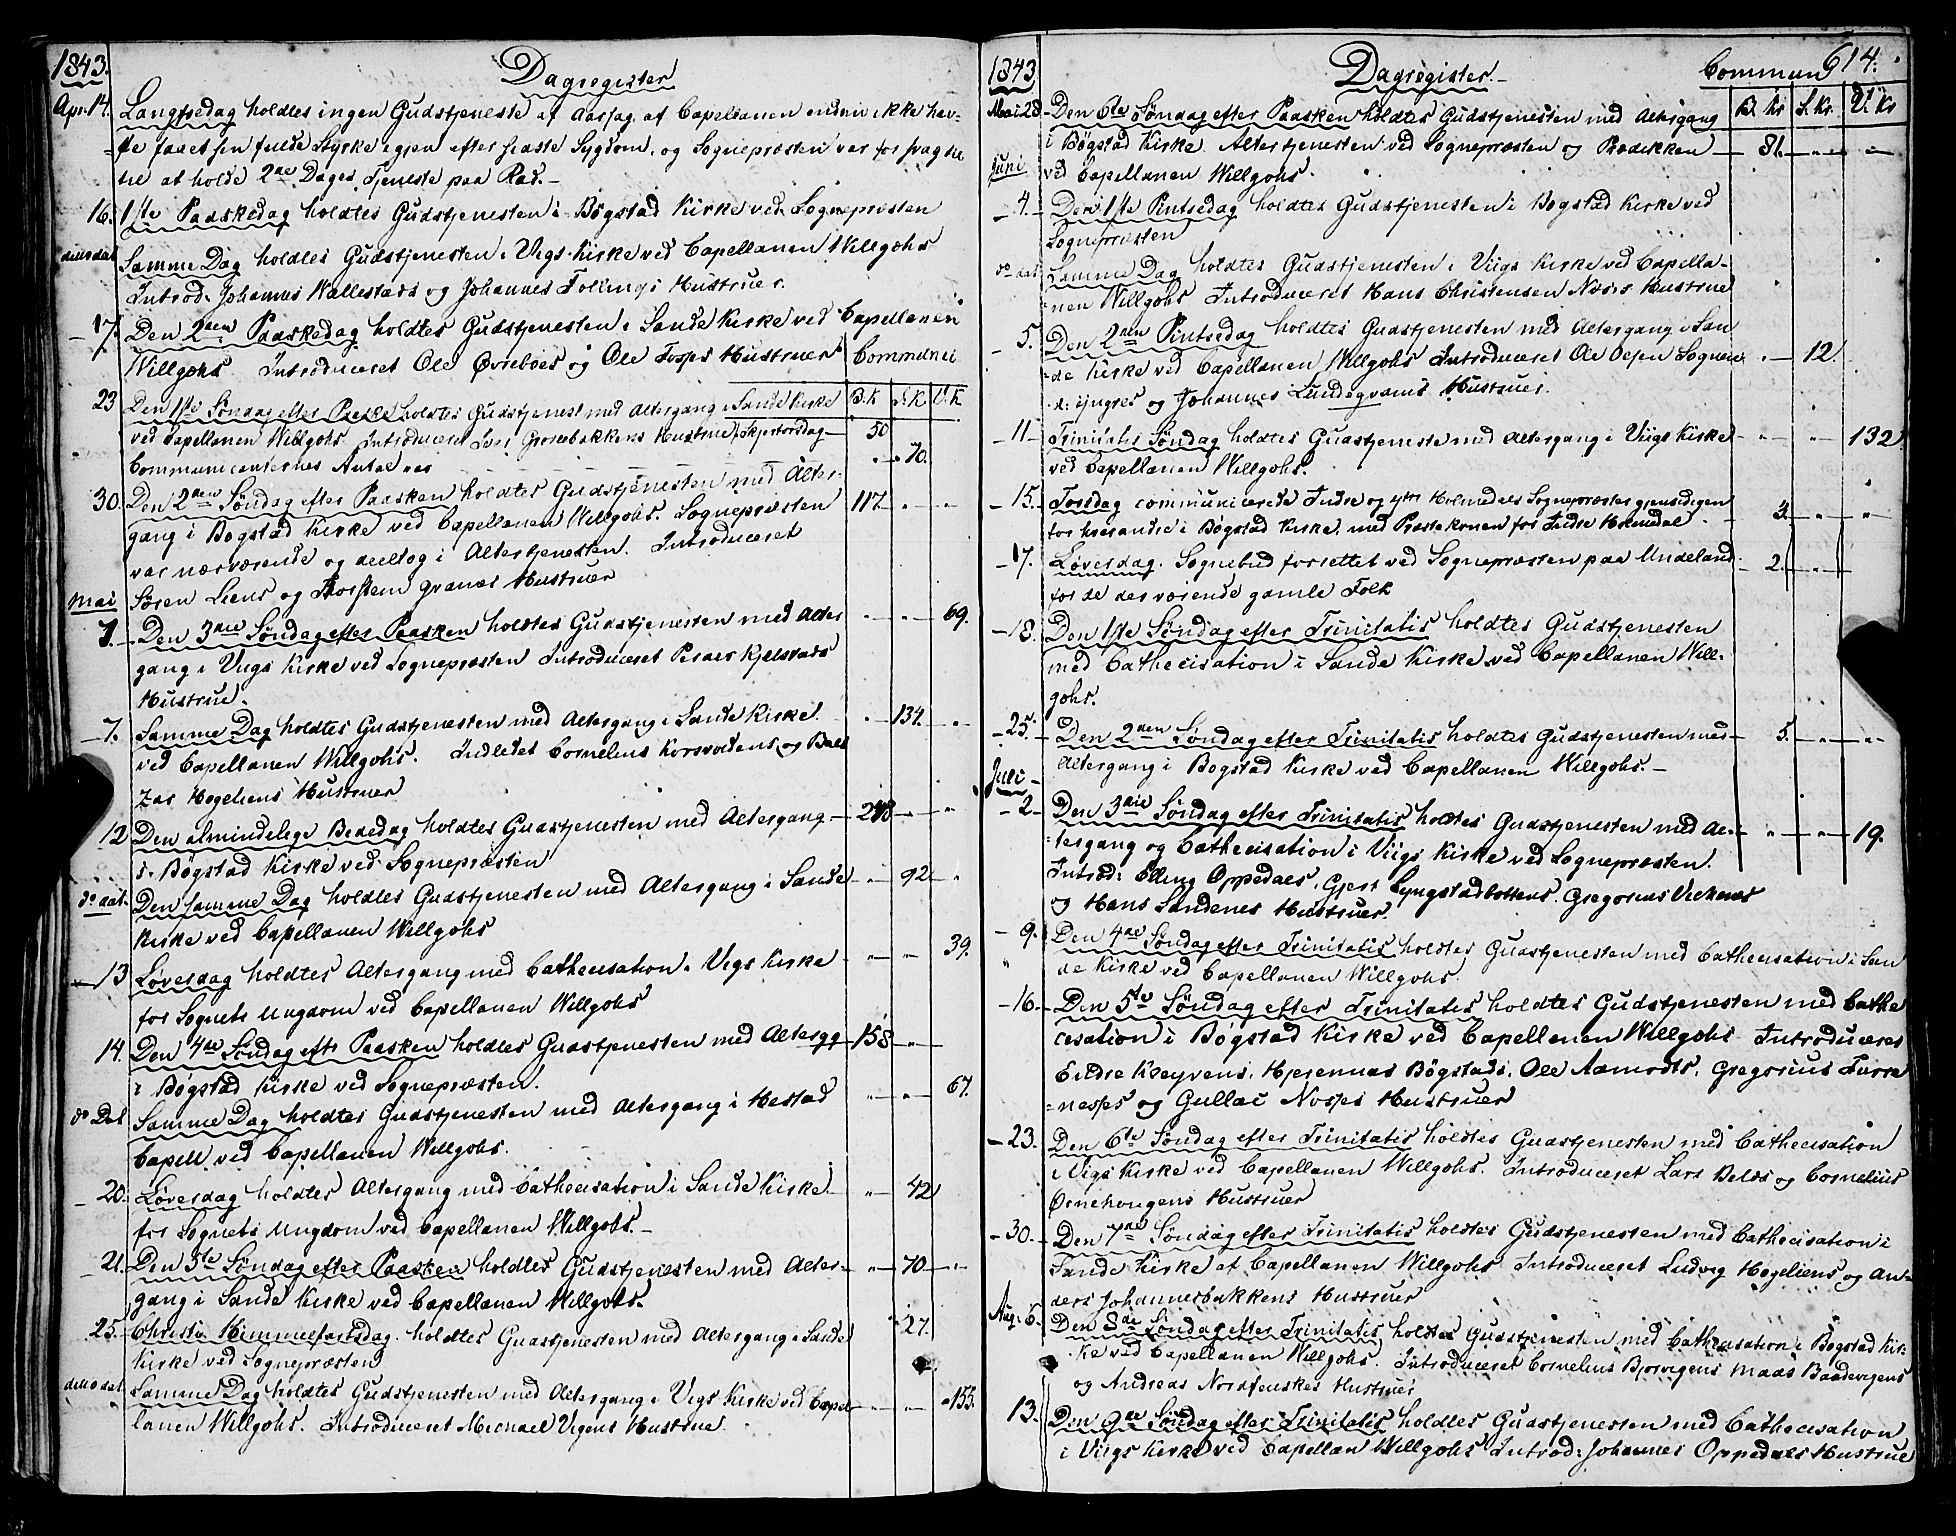 1843.
Dagregister
Apr. 14. Langfredag holdtes ingen Gudstjeneste af Aarsag, at Capellanen endnu ikke hav-
de faaet sin fulde Styrke igjen efter sidste Sygdom, og Sognepræsten var for svag til
til at holde 2de Dages Tjeneste paa Rad.-
16. 1ste Paaskedag holdtes Gudstjenesten i Bøgstad Kirke ved Sognepræsten
Samme Dag holdtes Gudstjenesten i Viigs Kirke ved Capellanen Willgohs
Introd: Johannes Wallestads og Johannes Follings Hustruer.
-17. Den 2den Paaskedag holdtes Gudstjenesten i Sande Kirke ved Capellanen
Willgohs Introduceret Ole Øvreboes og Ole Hustruer
Communi
B.K S.K V.K
23 Den 1ste Søndag efter Paaske holdtes Gudstjenest med Altergang i Sande Kirke
ved Capellanen Willgohs. Introduceret Hustrue, Skjertorsdag 50
Communicanternes Antal var 70.
30. Den 2den Søndag efter Paasken holdtes Gudstjenesten med Alter-
gang i Bøgstad Kirke ved Capellanen Willgohs. Sognepræsten 117
var nærværende og deeltog i Altertjenesten. Introduceret
Søren Liens og Thorstein Hustruer
Mai
7. Den 3die Søndag efter Paasken holdtes Gudstjenesten med Alter 69.
gang i Viigs Kirke ved Sognepræsten Introduceret Kjelstads
Hustrue.
-7. Samme Dag holdtes Gudstjenesten med Altergang i Sande Kirke. 134.
ved Capellanen Willgohs. Indledet Cornelius Korsvoldens og Bal
zar Hegeliens Hustruer
12 Den almindelige Bededag holdtes Gudstjenesten med Altergang 248
i Bøgstad Kirke ved Sognepræsten
do dat. Den samme Dag holdtes Gudstjenesten med Altergang i Sande 92
Kirke ved Capellanen Willgohs
-13 Løverdag holdtes Altergang med Cathecisation i Vigs Kirke 39.
for Sognets Ungdom ved Capellanen Willgohs
14. Den 4de Søndag efter Paasken holdtes Gudstjenesten med Altergg 158
i Bøgstad Kirke ved Sognepræsten.
do Dat Samme Dag holdtes Gudstjenesten med Altergang i Hestad 67.
Capell ved Capellanen Willgohs.
-20. Løverdag holdtes Altergang med Cathecisation i Sande Kirke 42
for Sognets Ungdom ved Capellanen Willgohs.-
-21. Den 5te Søndag efter Paasken holdtes Gudstjenesten med Alter- 70
gang i Sande Kirke ved Capellanen Willgohs.
25. Christi Himmelfartsdag holdtes Gudstjenesten med Altergang i Sande 27.
Kirke ved Sognepræsten
ditto dat Samme Dag holdtes Gudstjenesten med Altergang i Vigs Kirke ved Capel- 155.
lanen Willgohs. Introduceret Michael Vigens Hustrue
1843
Dagregister-
Commun 614.
B. Kr S. Kr. V. Kr
Mai 28. Den 6te Søndag efter Paasken holdtes Gudstjenesten med Altergang
i Bøgstad Kirke. Altertjenesten ved Sognepræsten og Prædikken 81.
ved Capellanen Willgohs.
Juni
-4. Den 1ste Pintsedag holdtes Gudstjenesten i Bøgstad Kirke ved
Sognepræsten
do dat. Samme Dag holdtes Gudstjenesten i Viigs Kirke ved Capella-
nen Willgohs Introduceret Hans Christensen Hustrue
5. Den 2den Pintsedag holdtes Gudstjenesten med Altergang i San
de Kirke ved Capellanen Willgohs Introduceret Ole 12.
og Johannes Hustruer.
-11 Trinitatis Søndag holdtes Gudstjeneste med Altergang i Viigs Kirke 132
ved Capellanen Willgohs.
-15. Torsdag communicerede Indre og ytre Holmedals Sognepræster gjensidigen
for hverandre i Bøgstad Kirke, med Præstekonen for Indre Holmedal. 3.
-17. Løverdag. Sognebud forrettet ved Sognepræsten paa Undeland 2.
for de derværende gamle Folk
-18. Den 1ste Søndag efter Trinitatis holdtes Gudstjenesten
med Cathecisation i Sande Kirke ved Capellanen Will-
gohs.
-25. Den 2den Søndag efter Trinitatis holdtes Gudstjenesten med 5.
Altergang i Bogstad Kirke ved Capellanen Willgohs.-
Juli
-2. Den 3die Søndag efter Trinitatis holdtes Gudstjenesten med Al- 19.
tergang og Cathecisation i Viigs Kirke ved Sognepræsten.
Introd: Elling Oppedals, Gjert Lyngstadbottens, Gregorius
og Hans Sandenes Hustruer.
-9. Den 4de Søndag efter Trinitatis holdtes Gudstjenesten med Cathecisation i San
de Kirke ved Capellanen Willgohs
-16. Den 5te Søndag efter Trinitatis holdtes Gudstjenesten med Cathe
cisation i Bøgstad Kirke ved Capellanen Willgohs Introduceres
Endre Kleyvens, Bøgstads, Ole Aamodts, Gregorius Furre
nesses og Gullac Hustruer
-23. Den 6te Søndag efter Trinitatis holdtes Gudstjenesten med Cathecisation
i Vigs Kirke ved Capellanen Willgohs. Introduceret Lars og Cornelius
Ørnehougens Hustruer
-30. Den 7de Søndag efter Trinitatis holdtes Gudstjenesten med Cathecisation i
Sande Kirke af Capellanen Willgohs Introduceret Ludvig Hegeliens og An-
ders Johannesbakkens Hustruer
Aug: 6. Den 8de Søndag efter Trinitatis holdtes Gudstjenesten med Cathecisation i Bøgstad Kir-
ke ved Capellanen Willgohs. Introduceret Cornelius Bjorvigens Mads Baadevigens
og Andreas Nordfenskes Hustruer
13. Den 9de Søndag efter Trinitatis holdtes Gudstjenesten med Cathecisation
i Viigs Kirke ved Capellan Willgohs Introd: Johannes Oppedals Hustrue